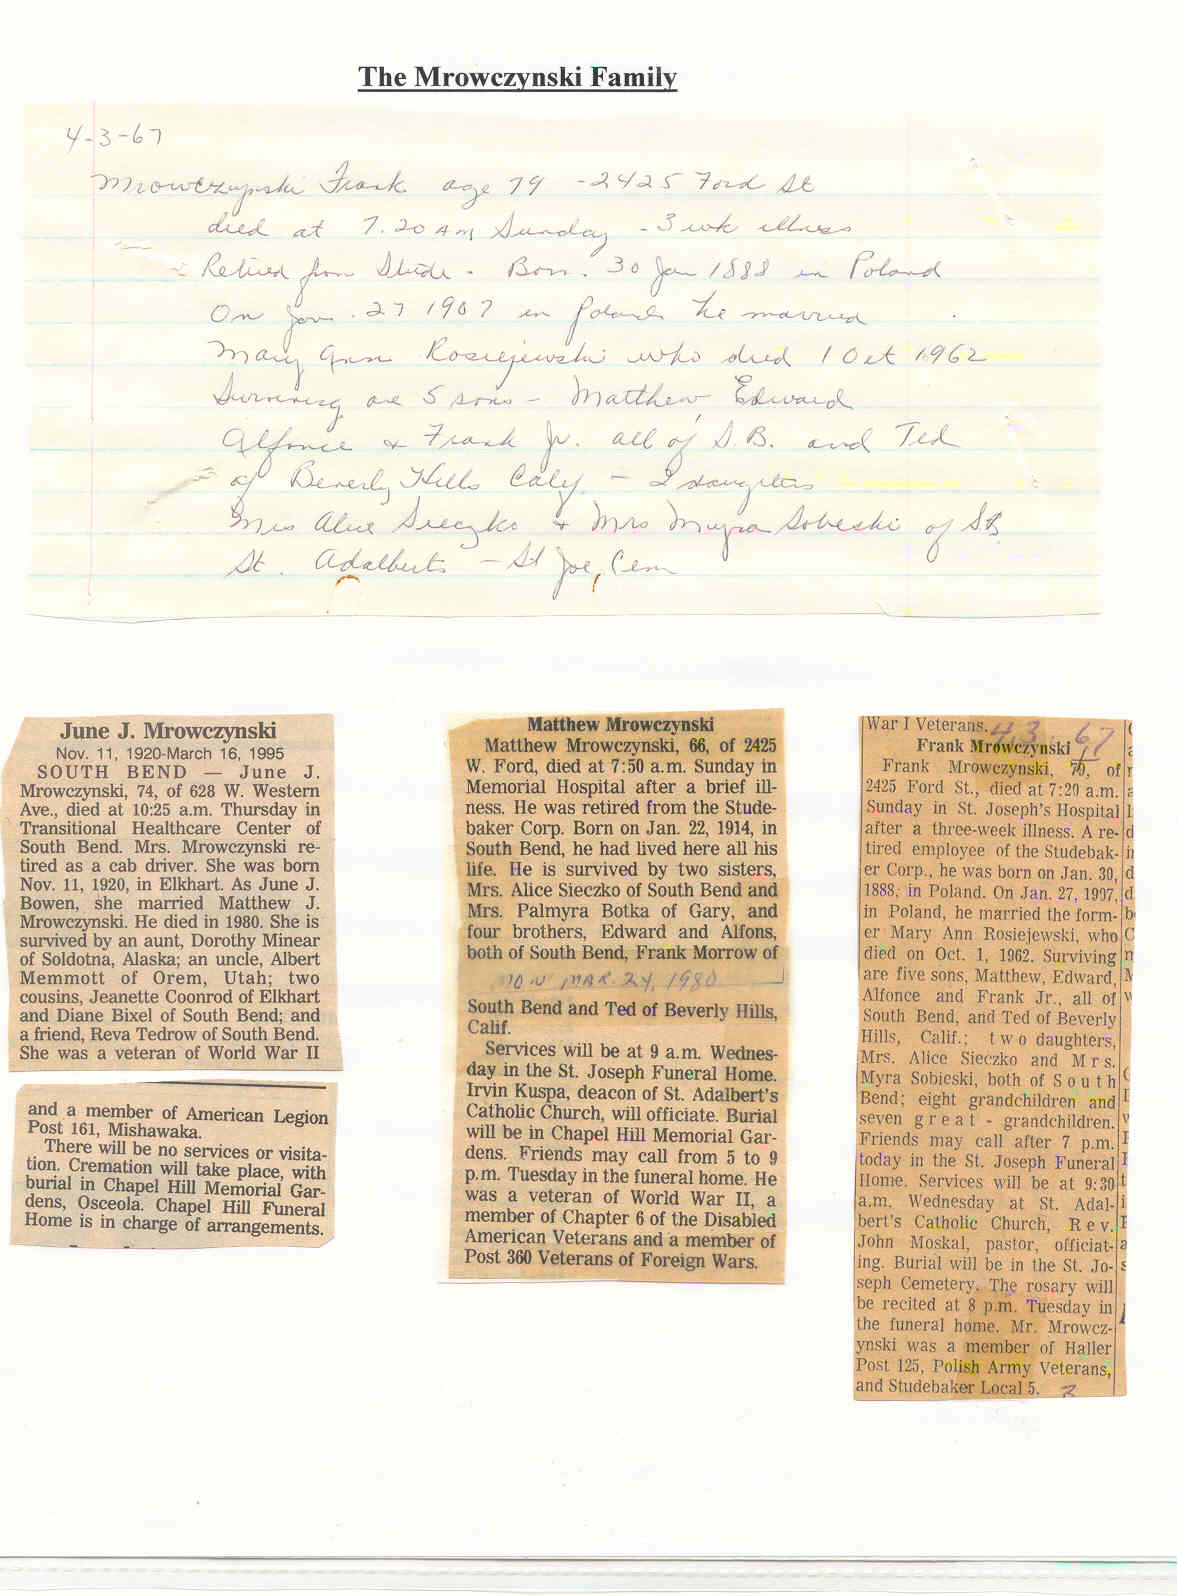 The Mrowczynski Family
4-3-67
Mrowczynski Frank age 79 - 2425 Ford St
died at 7.20 AM Sunday - 3 wk illness
Retired from Stude. Born. 30 Jan 1888 in Poland
On Jan. 27 1907 in Poland he married
Mary Ann Rosiejewski who died 1 Oct 1962
Surviving are 5 sons - Matthew, Edward
Alfonce & Frank Jr. all of S.B. and Ted
of Beverly Hills Calif - 2 daughters
Mrs Alice Sieczko & Mrs Myra Sobeski of SB
St. Adalberts - St Joe, Cem
June J. Mrowczynski
Nov. 11, 1920-March 16, 1995
SOUTH BEND — June J.
Mrowczynski, 74, of 628 W. Western
Ave., died at 10:25 a.m. Thursday in
Transitional Healthcare Center of
South Bend. Mrs. Mrowczynski re-
tired as a cab driver. She was born
Nov. 11, 1920, in Elkhart. As June J.
Bowen, she married Matthew J.
Mrowczynski. He died in 1980. She is
survived by an aunt, Dorothy Minear
of Soldotna, Alaska; an uncle, Albert
Memmott of Orem, Utah; two
cousins, Jeanette Coonrod of Elkhart
and Diane Bixel of South Bend; and
a friend, Reva Tedrow of South Bend.
She was a veteran of World War II
and a member of American Legion
Post 161, Mishawaka.
There will be no services or visita-
tion. Cremation will take place, with
burial in Chapel Hill Memorial Gar-
dens, Osceola. Chapel Hill Funeral
Home is in charge of arrangements.
Matthew Mrowczynski
Matthew Mrowczynski, 66, of 2425
W. Ford, died at 7:50 a.m. Sunday in
Memorial Hospital after a brief ill-
ness. He was retired from the Stude-
baker Corp. Born on Jan. 22, 1914, in
South Bend, he had lived here all his
life. He is survived by two sisters,
Mrs. Alice Sieczko of South Bend and
Mrs. Palmyra Botka of Gary, and
four brothers, Edward and Alfons,
both of South Bend, Frank Morrow of
MON MAR. 24, 1980
South Bend and Ted of Beverly Hills,
Calif.
Services will be at 9 a.m. Wednes-
day in the St. Joseph Funeral Home.
Irvin Kuspa, deacon of St. Adalbert's
Catholic Church, will officiate. Burial
will be in Chapel Hill Memorial Gar-
dens. Friends may call from 5 to 9
p.m. Tuesday in the funeral home. He
was a veteran of World War II, a
member of Chapter 6 of the Disabled
American Veterans and a member of
Post 360 Veterans of Foreign Wars.
War I Veterans. 4.3. 67
Frank Mrowczynski
Frank Mrowczynski, 79, of
2425 Ford St., died at 7:20 a.m.
Sunday in St. Joseph's Hospital
after a three-week illness. A re-
tired employee of the Studebak-
er Corp., he was born on Jan. 30,
1888, in Poland. On Jan. 27, 1907,
in Poland, he married the form-
er Mary Ann Rosiejewski, who
died on Oct. 1, 1962. Surviving
are five sons, Matthew, Edward,
Alfonce and Frank Jr., all of
South Bend, and Ted of Beverly
Hills, Calif.; two daughters,
Mrs. Alice Sieczko and Mrs.
Myra Sobieski, both of South
Bend; eight grandchildren and
seven great-grandchildren.
Friends may call after 7 p.m.
today in the St. Joseph Funeral
Home. Services will be at 9:30
a.m. Wednesday at St. Adal-
bert's Catholic Church, Rev.
John Moskal, pastor, officiat-
ing. Burial will be in the St. Jo-
seph Cemetery. The rosary will
be recited at 8 p.m. Tuesday in
the funeral home. Mr. Mrowcz-
ynski was a member of Haller
Post 125, Polish Army Veterans,
and Studebaker Local 5.